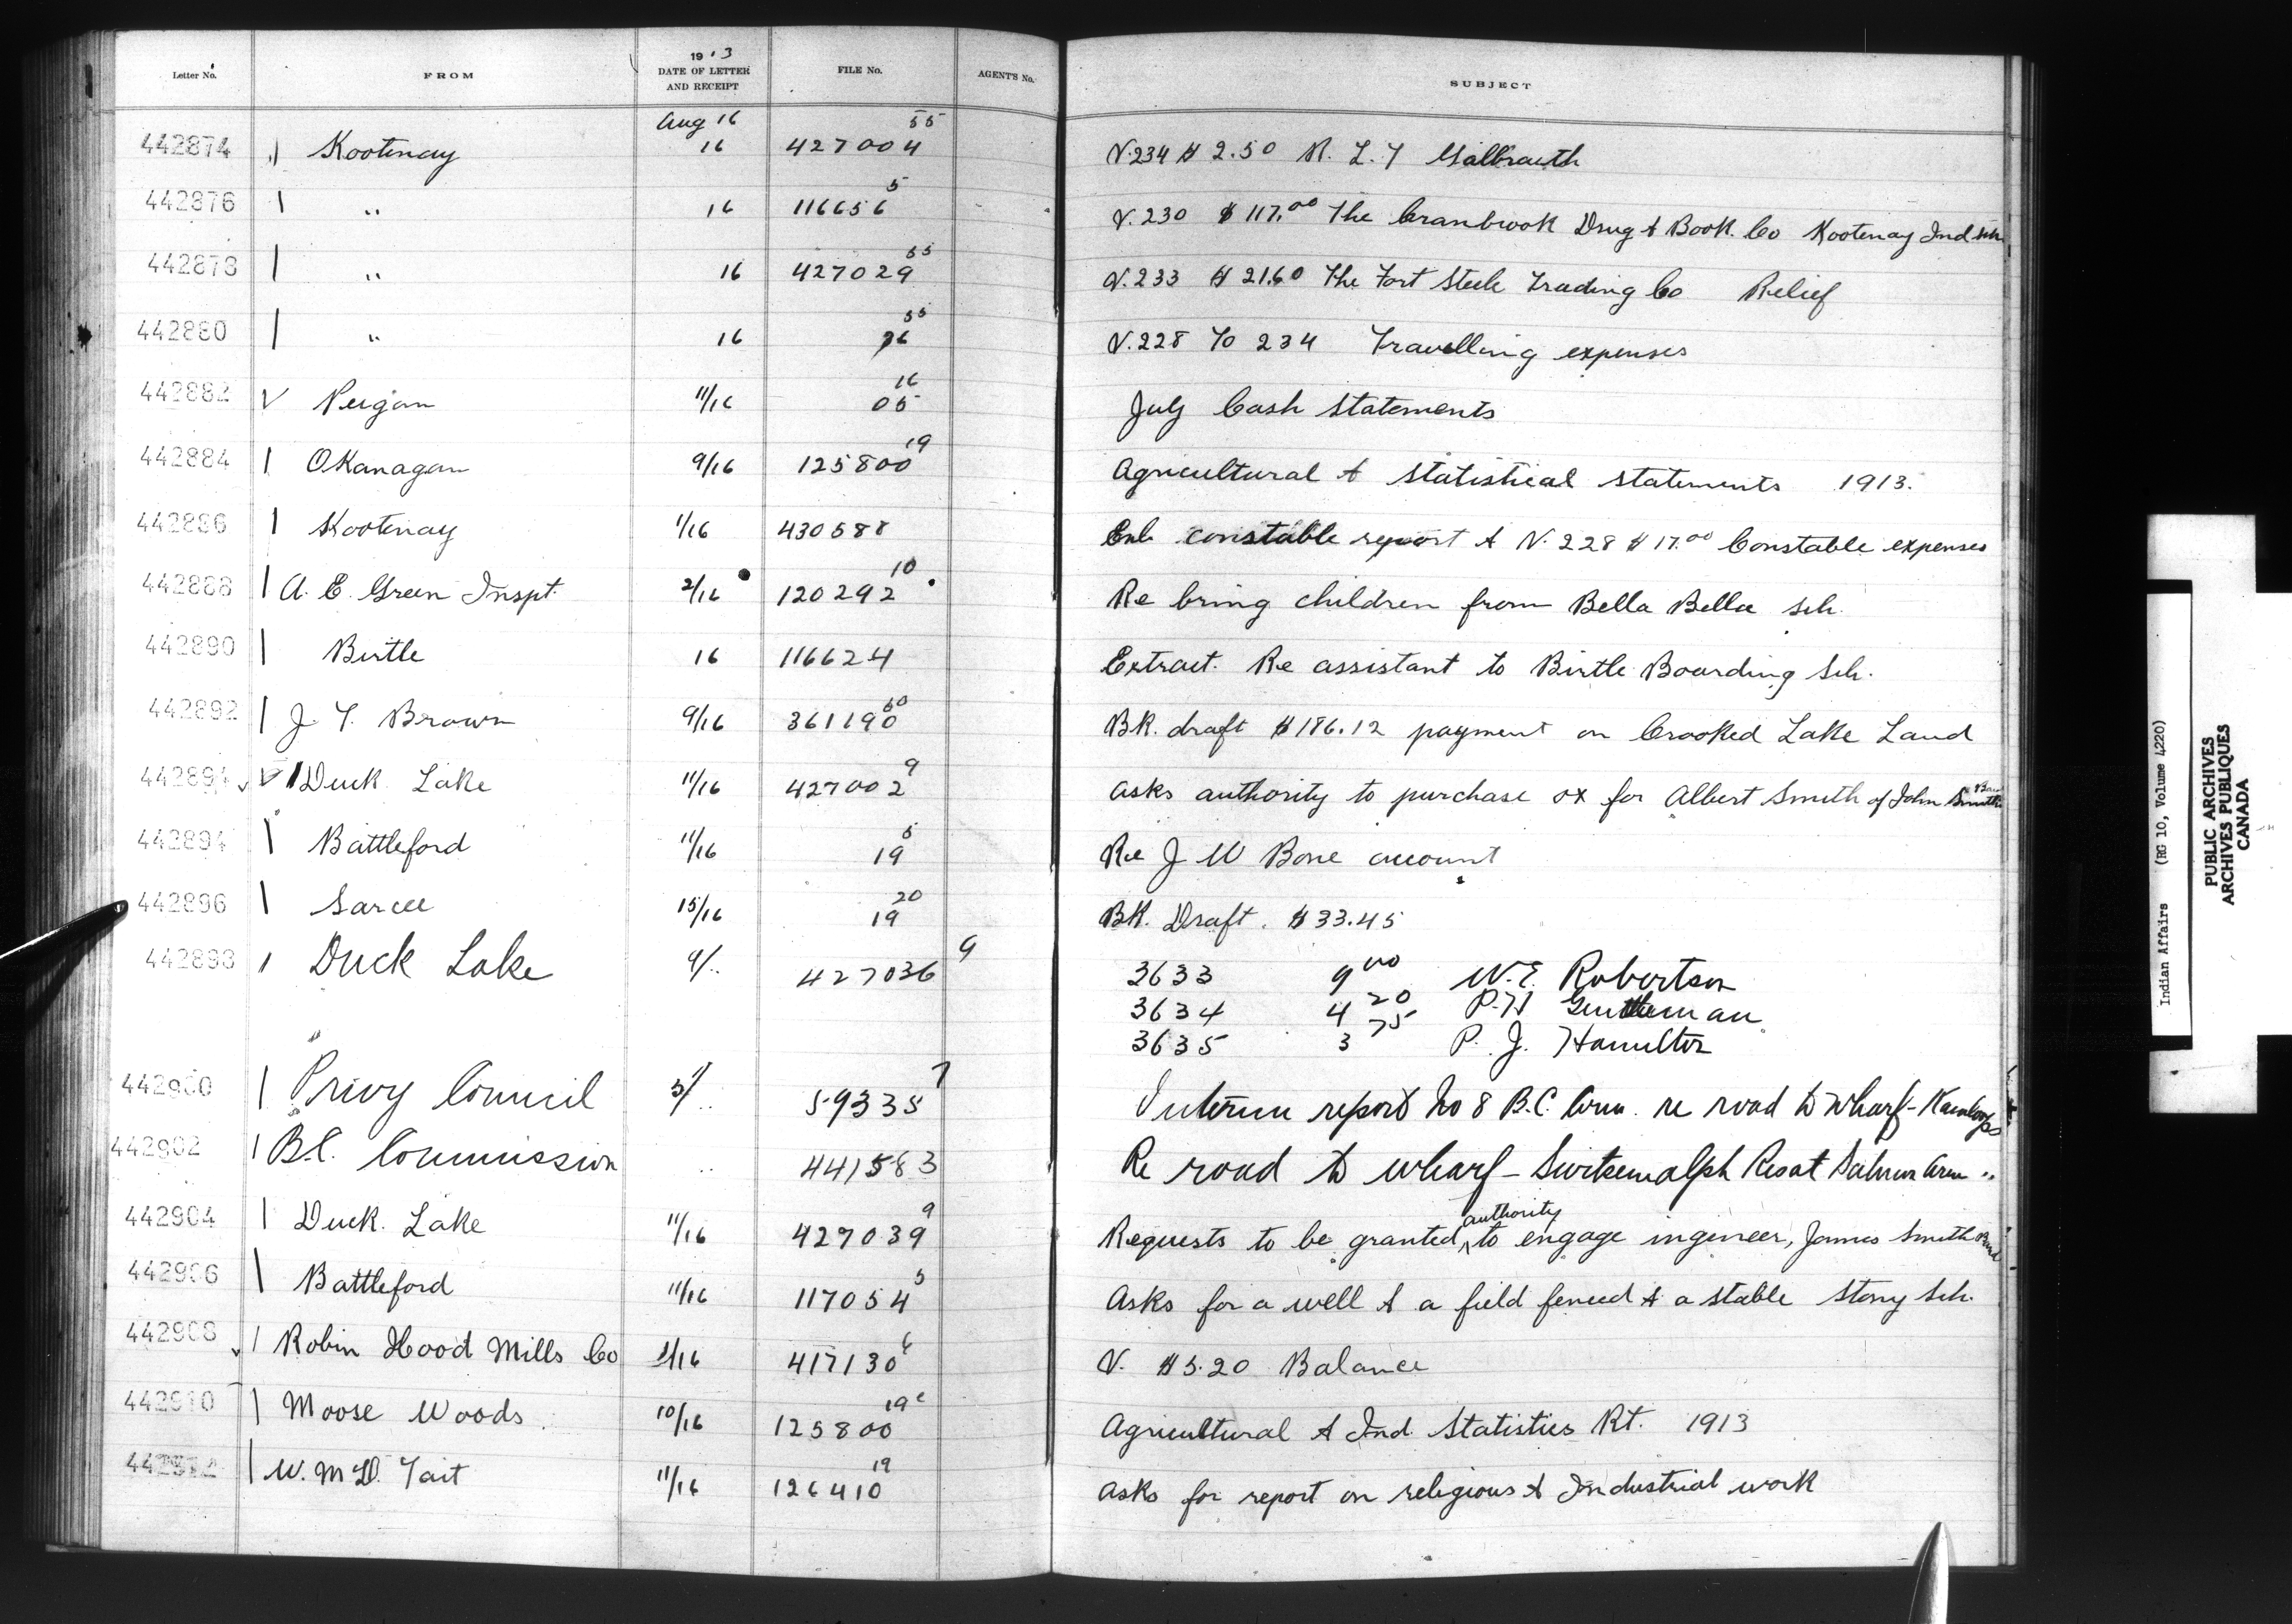 Letter No. FROM 1913 DATE OF LETTER AND RECEIPT FILE No. AGENT'S No. SUBJECT
Aug 16
442874 Kootenay 16 427004 55 V.234 $ 2.50 R. L. T Galbraith
442876 " 16 116656 5 V.230 $ 117.00 The Cranbrook Drug & Book. Co Kootenay Ind Sch
442878 " 16 427029 55 V.233 $ 21.60 The Fort Steele Trading Co Relief
442880 " 16 36 55 V.228 To 234 Travelling expenses
442882 Peigan 11/16 05 16 July Cash Statements
442884 OKanagan 9/16 125800 19 Agricultural & Statistical Statements 1913.
442886 Kootenay 1/16 430588 Enc constable report & V. 228 $ 17.00 Constable expenses
442888 A. E. Green Inspt. 2/16 120292 10 Re bring children from Bella Bella sch.
442890 Birtle 16 116624 Extract. Re assistant to Birtle Boarding Sch.
442892 J. T. Brown 9/16 361190 60 BK. draft $186.12 payment on Crooked Lake Land
442894 Duck Lake 11/16 427002 9 Asks authority to purchase ox for Albert Smith of John Smith's Band
442894 Battleford 11/16 19 5 Re J W Bone account
442896 Sarcee 15/16 19 20 BK. Draft. $33.45
442898 Duck Lake 9/.. 427036 9 3633 9 00 W. E. Robertson
3634 4 20 P. H Gentleman
3635 3 75 P. J. Hamilton
442900 Privy Council 5/.. 59335 7 Interim report No 8 B.C. Com. re road to wharf - Kamloops
442902 B.C. Commission .. 441583 Re road to wharf - Switsemalph Res at Salmon Arm "
442904 Duck. Lake 11/16 427039 9 Requests to be granted authority to engage ingineer, James Smith Band
442906 Battleford 11/16 117054 5 Asks for a well & a field fenced & a stable Stony Sch.
442908 Robin Hood Mills Co 11/16 417130 6 V. $5.20 Balance
442910 Moose Woods 10/16 125800 19 Agricultural & Ind. Statistics Rt. 1913
442912 W. M D. Tait 11/16 126410 19 Asks for report on religious & Industrial work
Indian Affairs (RG 10, Volume 4220)
PUBLIC ARCHIVES
ARCHIVES PUBLIQUES
CANADA